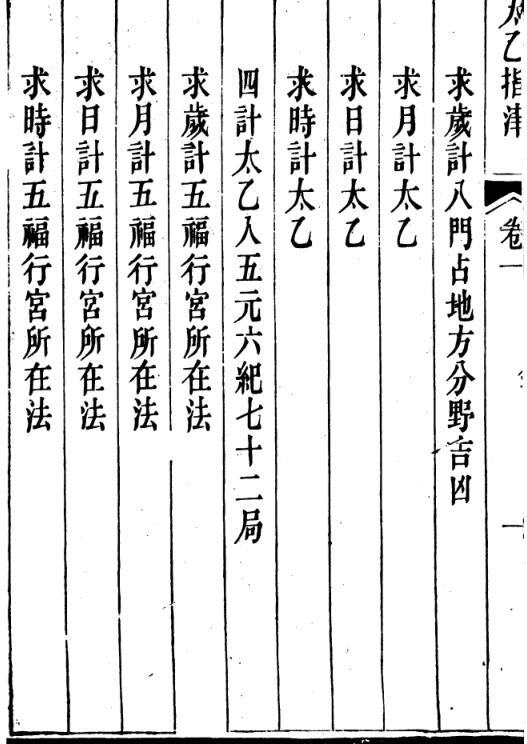 太乙指津
卷一
一
求歲計八門占地方分野吉凶
求月計太乙
求日計太乙
求時計太乙
四計太乙入五元六紀七十二局
求歲計五福行宮所在法
求月計五福行宮所在法
求日計五福行宮所在法
求時計五福行宮所在法